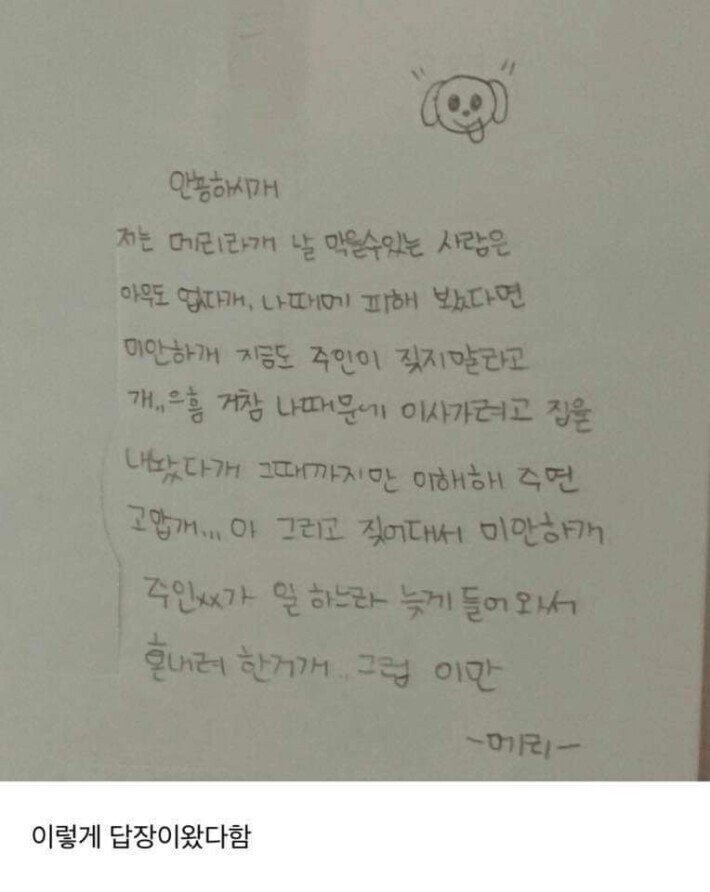 안뇽하시개
저는 메리라개 날 막을수있는 사람은
아무도 업다개, 나때메 피해 보았다면
미안하개 지금도 주인이 짖지말라고
개,,으흠 거참 나때문에 이사가려고 집을
내놨다개 그때까지만 이해해 주면
고맙개... 아 그리고 짖어대서 미안하개
주인xx가 일 하느라 늦게 들어와서
혼내려 한거개.. 그럼 이만
-메리-
이렇게 답장이왔다함